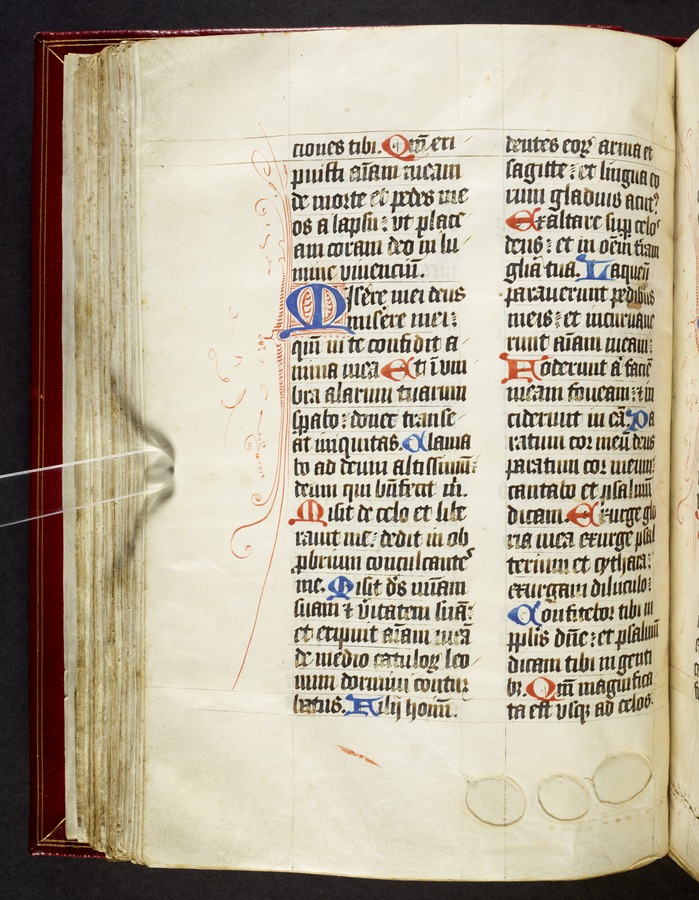 ciones tibi. Qm̄ eri
puisti aīam meam
de morte et pedes me
os a lapsu: vt place
am coram deo in lu
mine viuenciū.
Misere mei deus
misere mei:
qm̄ in te confidit a
nima mea Et ī vm
bra alarum tuarum
spabo: donec transe
at iniquitas. Clama
bo ad deum altissimū:
deum qui bn̄fecit m̄.
Misit de celo et libe
rauit me: dedit in ob
ꝓbrium conculcantes
me. Misit ds̄ mīam
suam ⁊ v̄itatem suā:
et eripuit aīam meā
de medio catuloꝝ leo
num dormiui contur
batus. Filij hoīm.
dentes eoꝝ arma et
sagitte: et lingua eo
rum gladius acut⁹
Exaltare sup celos
deus: et in oēm tr̄am
glīa tua. Laqueū
parauerunt pedibus
meis: et incuruaue
runt aīam meam:
Foderunt aʼ faciē
meam foueam: ⁊ in
ciderunt in eā: Pa
ratum cor meū deus
paratum cor meum:
cantabo et psalmū
dicam. Exurge glo
ria mea exurge psal
terium et cythara:
exurgam diluculo:
Confitebor tibi in
pplis dn̄e: et psalmū
dicam tibi in genti
bꝫ. Qm̄ magnifica
ta est vsqꝫ ad celos.